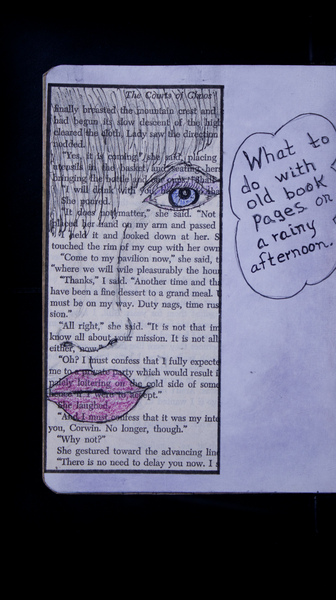 The Courts of Chaos
finally breasted the mountain crest and
had begun its slow descent of the high
cleared the cloth. Lady saw the direction
nodded.
"Yes, it is coming," she said, placing
utensils in the basket and
"I will drink with you
She poured.
"It does not matter," she said. "Not
placed her hand on my arm and passed
I held it and looked down at her. S
touched the rim of my cup with her own
"Come to my pavilion now," she said, t
"where we will wile pleasurably the hou
"Thanks," I said. "Another time and th
have been a fine dessert to a grand meal. U
must be on my way. Duty nags, time rus
sion."
"All right," she said. "It is not that im
know all about your mission. It is not all
either, now."
"Oh? I must confess that I fully expecte
me to party which would result i
loitering on the cold side of some
hence if I were to accept."
She laughed.
"And I must confess that it was my inte
you, Corwin. No longer, though."
"Why not?"
She gestured toward the advancing line
"There is no need to delay you now. I s
What to
do with
old book
pages on
a rainy
afternoon.